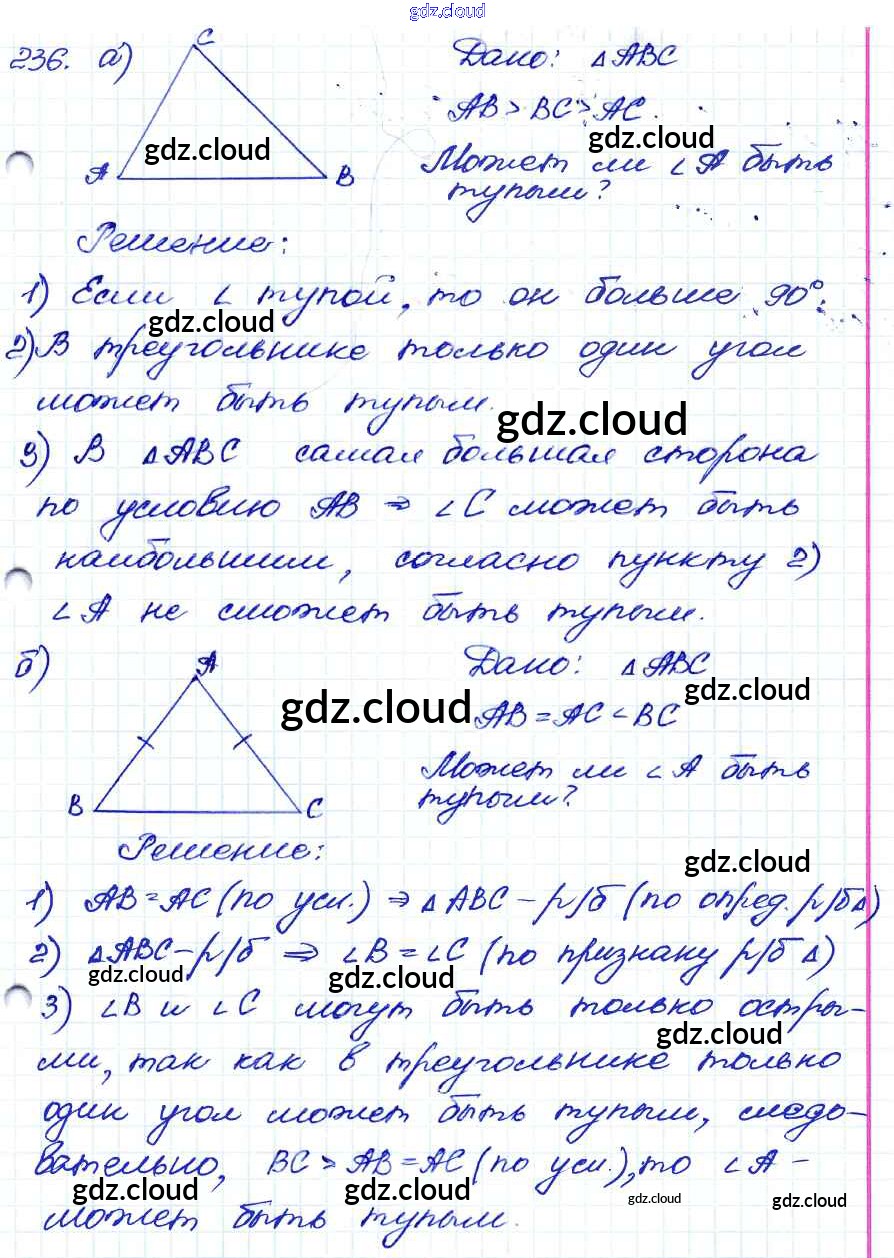 gdz.cloud
236. а) C Дано: △ABC
AB > BC > AC.
gdz.cloud gdz.cloud
A B Может ли ∠A быть
тупым?
Решение:
1) Если ∠ тупой, то он больше 90°.
gdz.cloud
2) В треугольнике только один угол
может быть тупым.
gdz.cloud
3) В △ABC самая большая сторона
по условию AB ⇒ ∠C может быть
наибольшим, согласно пункту 2)
∠A не сможет быть тупым.
б) A Дано: △ABC
gdz.cloud gdz.cloud
AB = AC < BC
Может ли ∠A быть
B C тупым?
Решение:
gdz.cloud
1) AB = AC (по усл.) ⇒ △ABC – р/б (по опред. р/б△)
2) △ABC – р/б ⇒ ∠B = ∠C (по признаку р/б △)
gdz.cloud gdz.cloud
3) ∠B и ∠C могут быть только остры-
gdz.cloud
ми, так как в треугольнике только
один угол может быть тупым, следо-
вательно, BC > AB = AC (по усл.), то ∠A –
gdz.cloud gdz.cloud gdz.cloud gdz.cloud
может быть тупым.